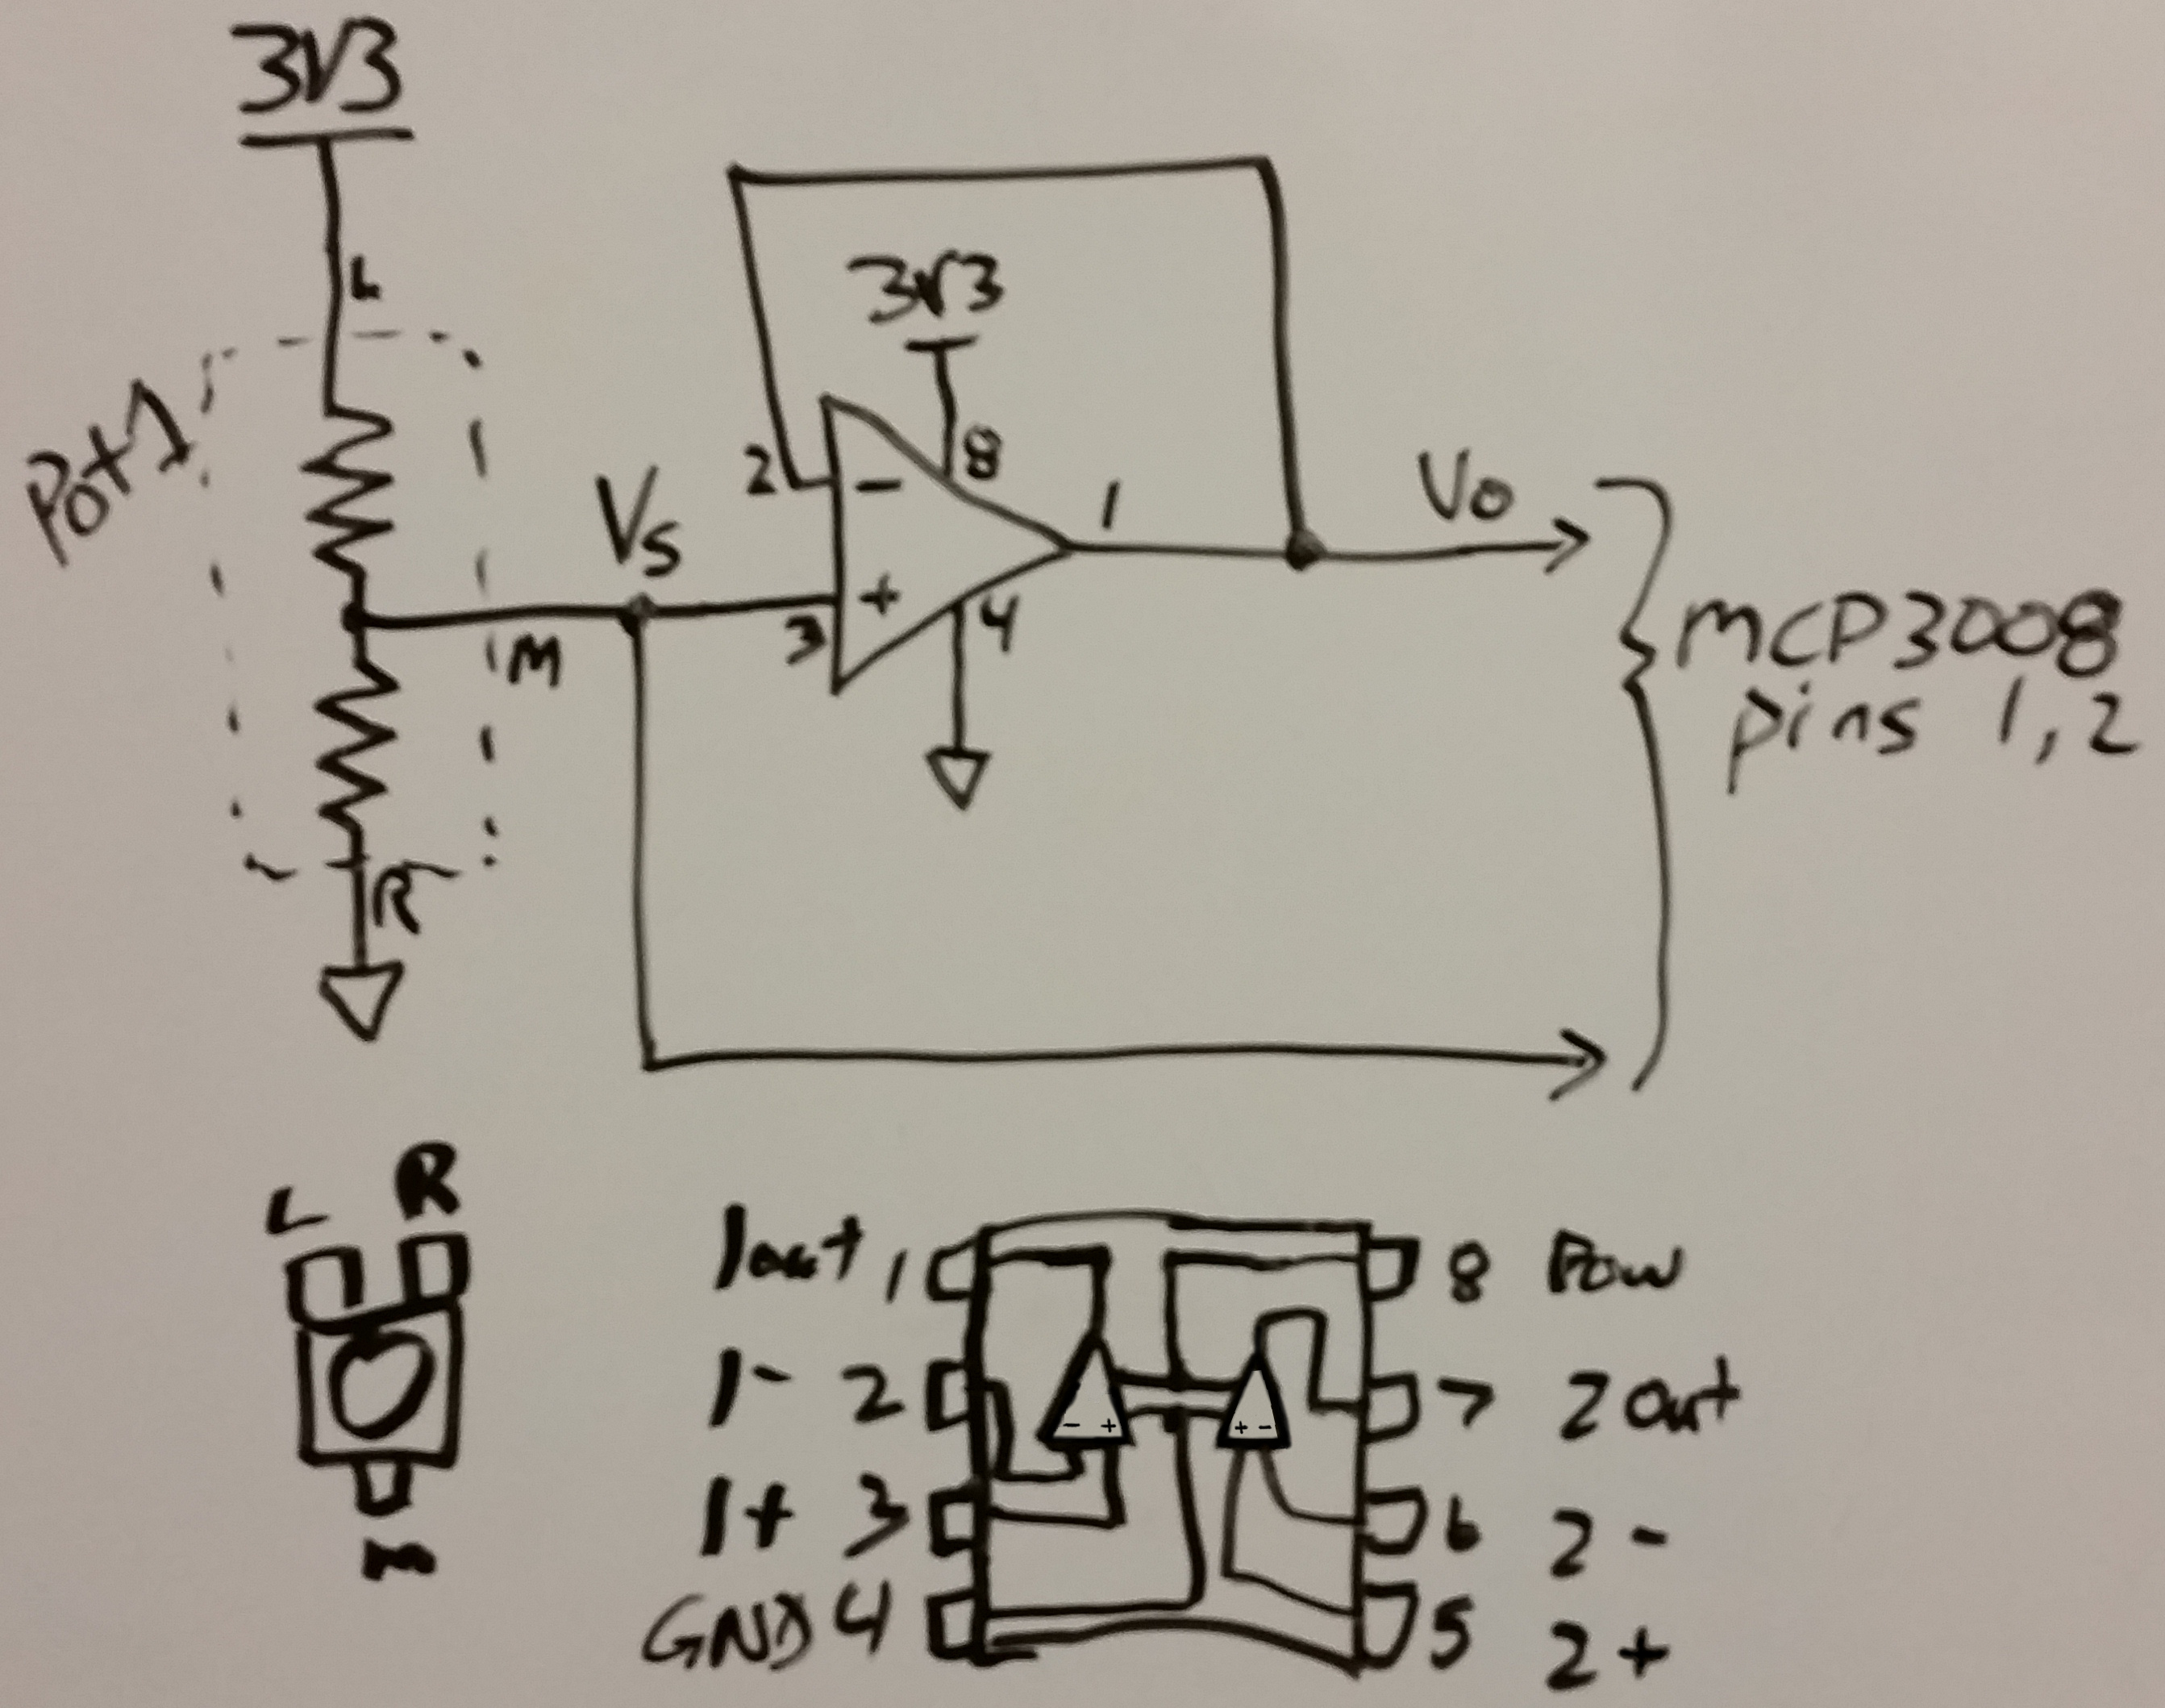 3V3
L
Pot1
M
R
Vs
3V3
2
-
8
3
+
4
1
Vo
MCP3008
pins 1,2
L R
M
1out 1
1- 2
1+ 3
GND 4
- +
+ -
8 Pow
7 2out
6 2 -
5 2 +